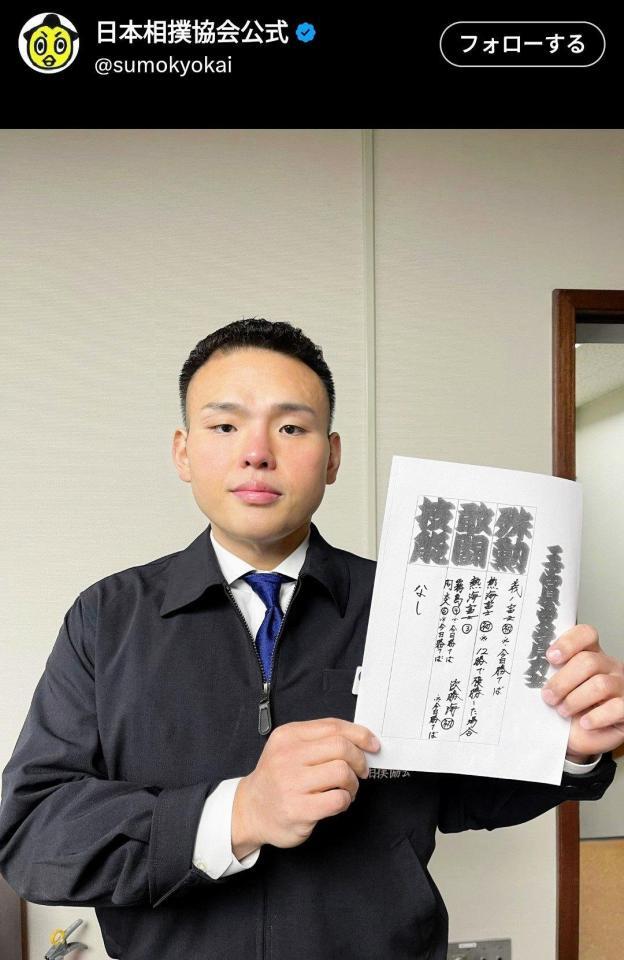 日本相撲協会公式
@sumokyokai
フォローする
三賞受賞力士
殊勲
義ノ富士 初 ※今日勝てば
熱海富士 初 ※12勝で優勝した場合
敢闘
熱海富士 ③
霧島 ④ ※今日勝てば
欧勝海 初
※今日勝てば
阿炎 ⑥ ※今日勝てば
技能
なし
相撲協会